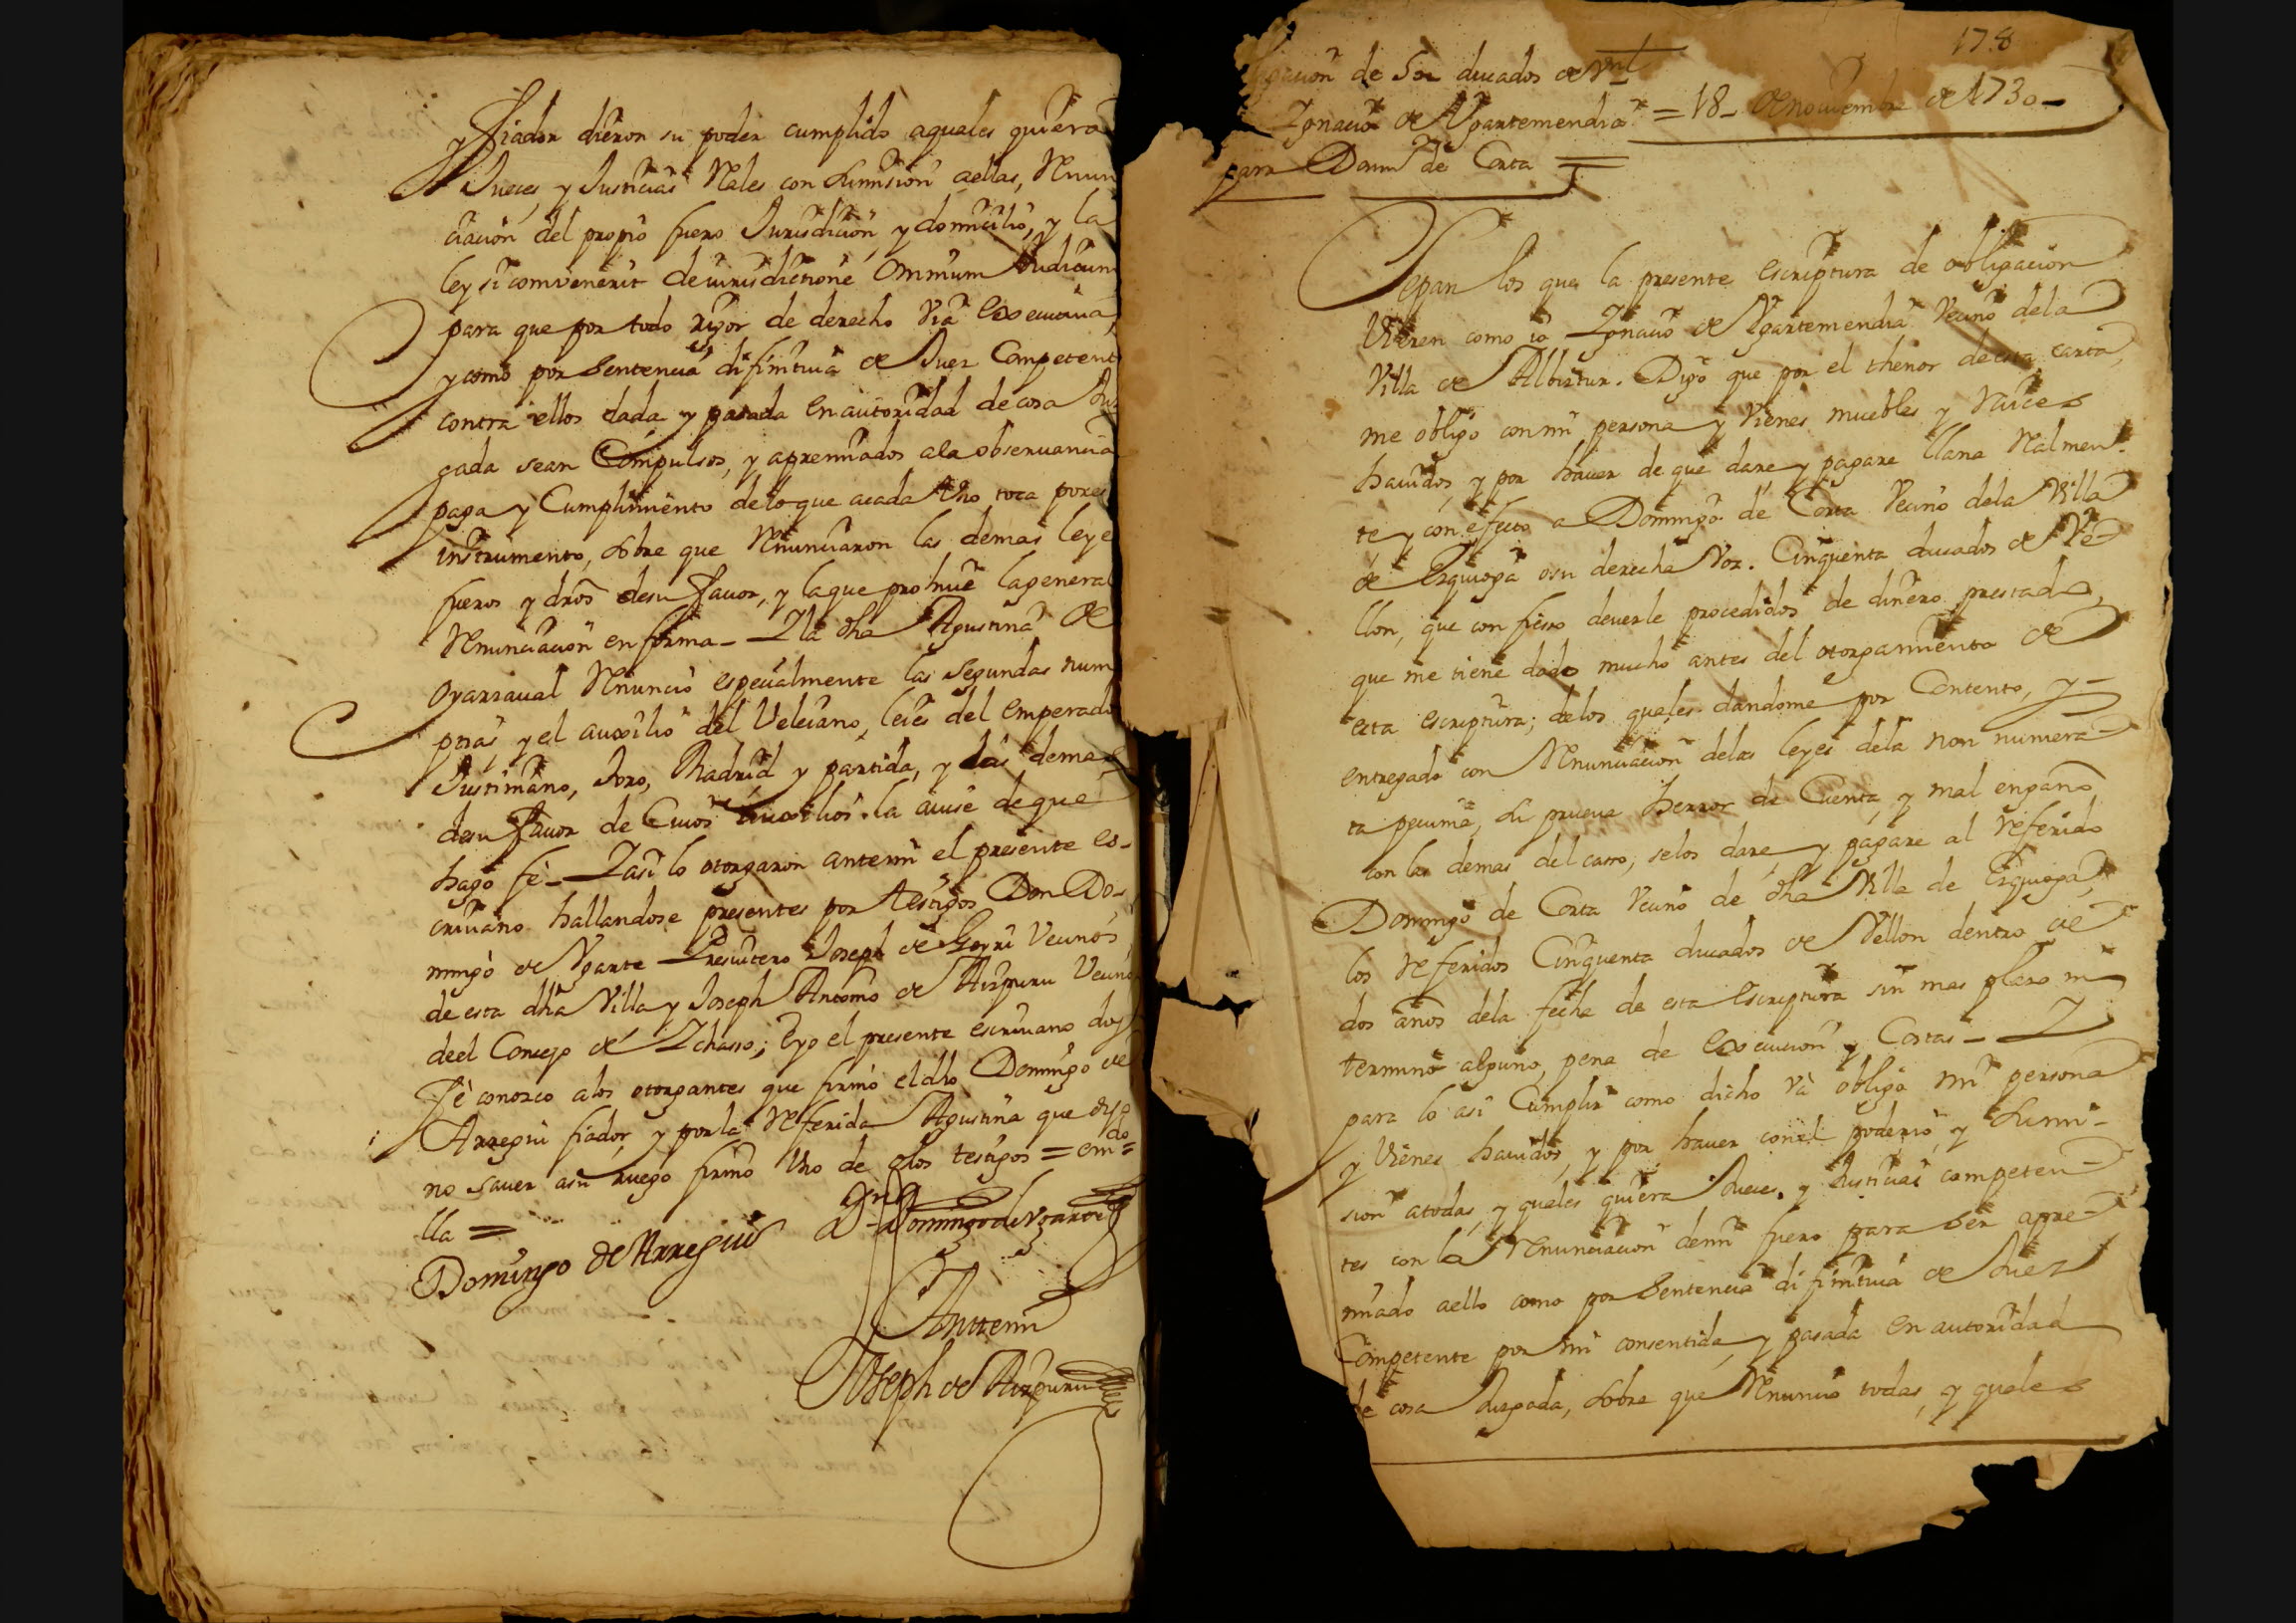 y fiador dieron su poder cumplido aquales quiera
Jueces, y Justicias Rales con sumision aellas, Renun
ciacion del propio fuero Jurisdicion, y domicilio, y la
ley si comvenerit de iurisdictione Omnium Judicum
para que por todo rigor de derecho via execuciva,
y como por Sentencia difinitiva de Juez Competent
contra ellos dada y pasada en autoridad de cosa Juz
gada sean Compulsos, y apremiados ala observancia
paga y Cumplimiento delo que acada Uno toca por es
instrumento, sobre que Renunciaron las demas leye
fueros y dros desu favor, y la que prohive la general
Renunciacion en forma_ I la dha Agustina de
Oyarzaval Renuncio especialmente las Segundas num
pcias y el auxilio del Veleiano, leies del emperado
Justiniano, Toro, Madrid y partida, y las demas
desu favor de Cuios auxilios la avise deque
hago fe_ I asi lo otorgaron antemi el presente es-
crivano hallandose presentes por testigos Don Do-
mingo de Ygarte Presvitero Joseph de Gorri Vecinos
de esta dha Villa y Joseph Antonio de Aizpuru Vecino
deel Concejo de Ichasso; Eyo el presente escrivano doy
fè conozco alos otorgantes que firmó el dho Domingo de
Arregui fiador, y por la Referida Agustina que dijo
no saver asu ruego firmó Uno de dlos testigos = emdo=
lla =
Domingo de Arregui Dn Domingo de Ygarte
Antemi
Joseph de Aizpuru
178
gacion de 50 ducados de Vnl
Ignacio de Ygartemendia = 18_ de noviembre de 1730_
para Domo de Corta =
Sepan los que la presente escriptura de obligacion
Vieren como io Ignacio de Ygartemendia Vecino dela
Villa de Albiztur. Digo que por el thenor de esta carta,
me obligo con mi persona y Vienes muebles y Raices
havidos, y por haver de que dare, y pagare llana Ralmen-
te y con efecto a Domingo de Corta Vecino dela Villa
de Ezquioga osu derecha Voz. Cinquenta ducados de Ve-
llon, que confieso deverle procedidos de dinero prestado,
que me tiene dado mucho antes del otorgamiento de
esta escriptura; delos quales dandome por Contento, y-
entregado con Renunciacion delas leyes dela non numera-
ta pecunia, su prueva herror de Cuenta, y mal engaño
con las demas del casso, selos dare, y pagare al referido
Domingo de Corta Vecino de dha Villa de Ezquioga,
los referidos Cinquenta ducados de Vellon dentro de
dos años dela fecha de esta Escriptura sin mas plazo ni
termino alguno, pena de Execucion y Costas_ I
para lo asi Cumplir como dicho và obligo mi persona
y Vienes havidos, y por haver con el poderio, y sumi-
sion atodas, y quales quiera Jueces, y Justicias competen-
tes con la Renunciacion demi fuero para ser apre-
miado aello como por Sentencia difinitiva de Juez
Competente por mi consentida, y pasada en autoridad
de cosa Juzgada, sobre que Renuncio todas, y quales